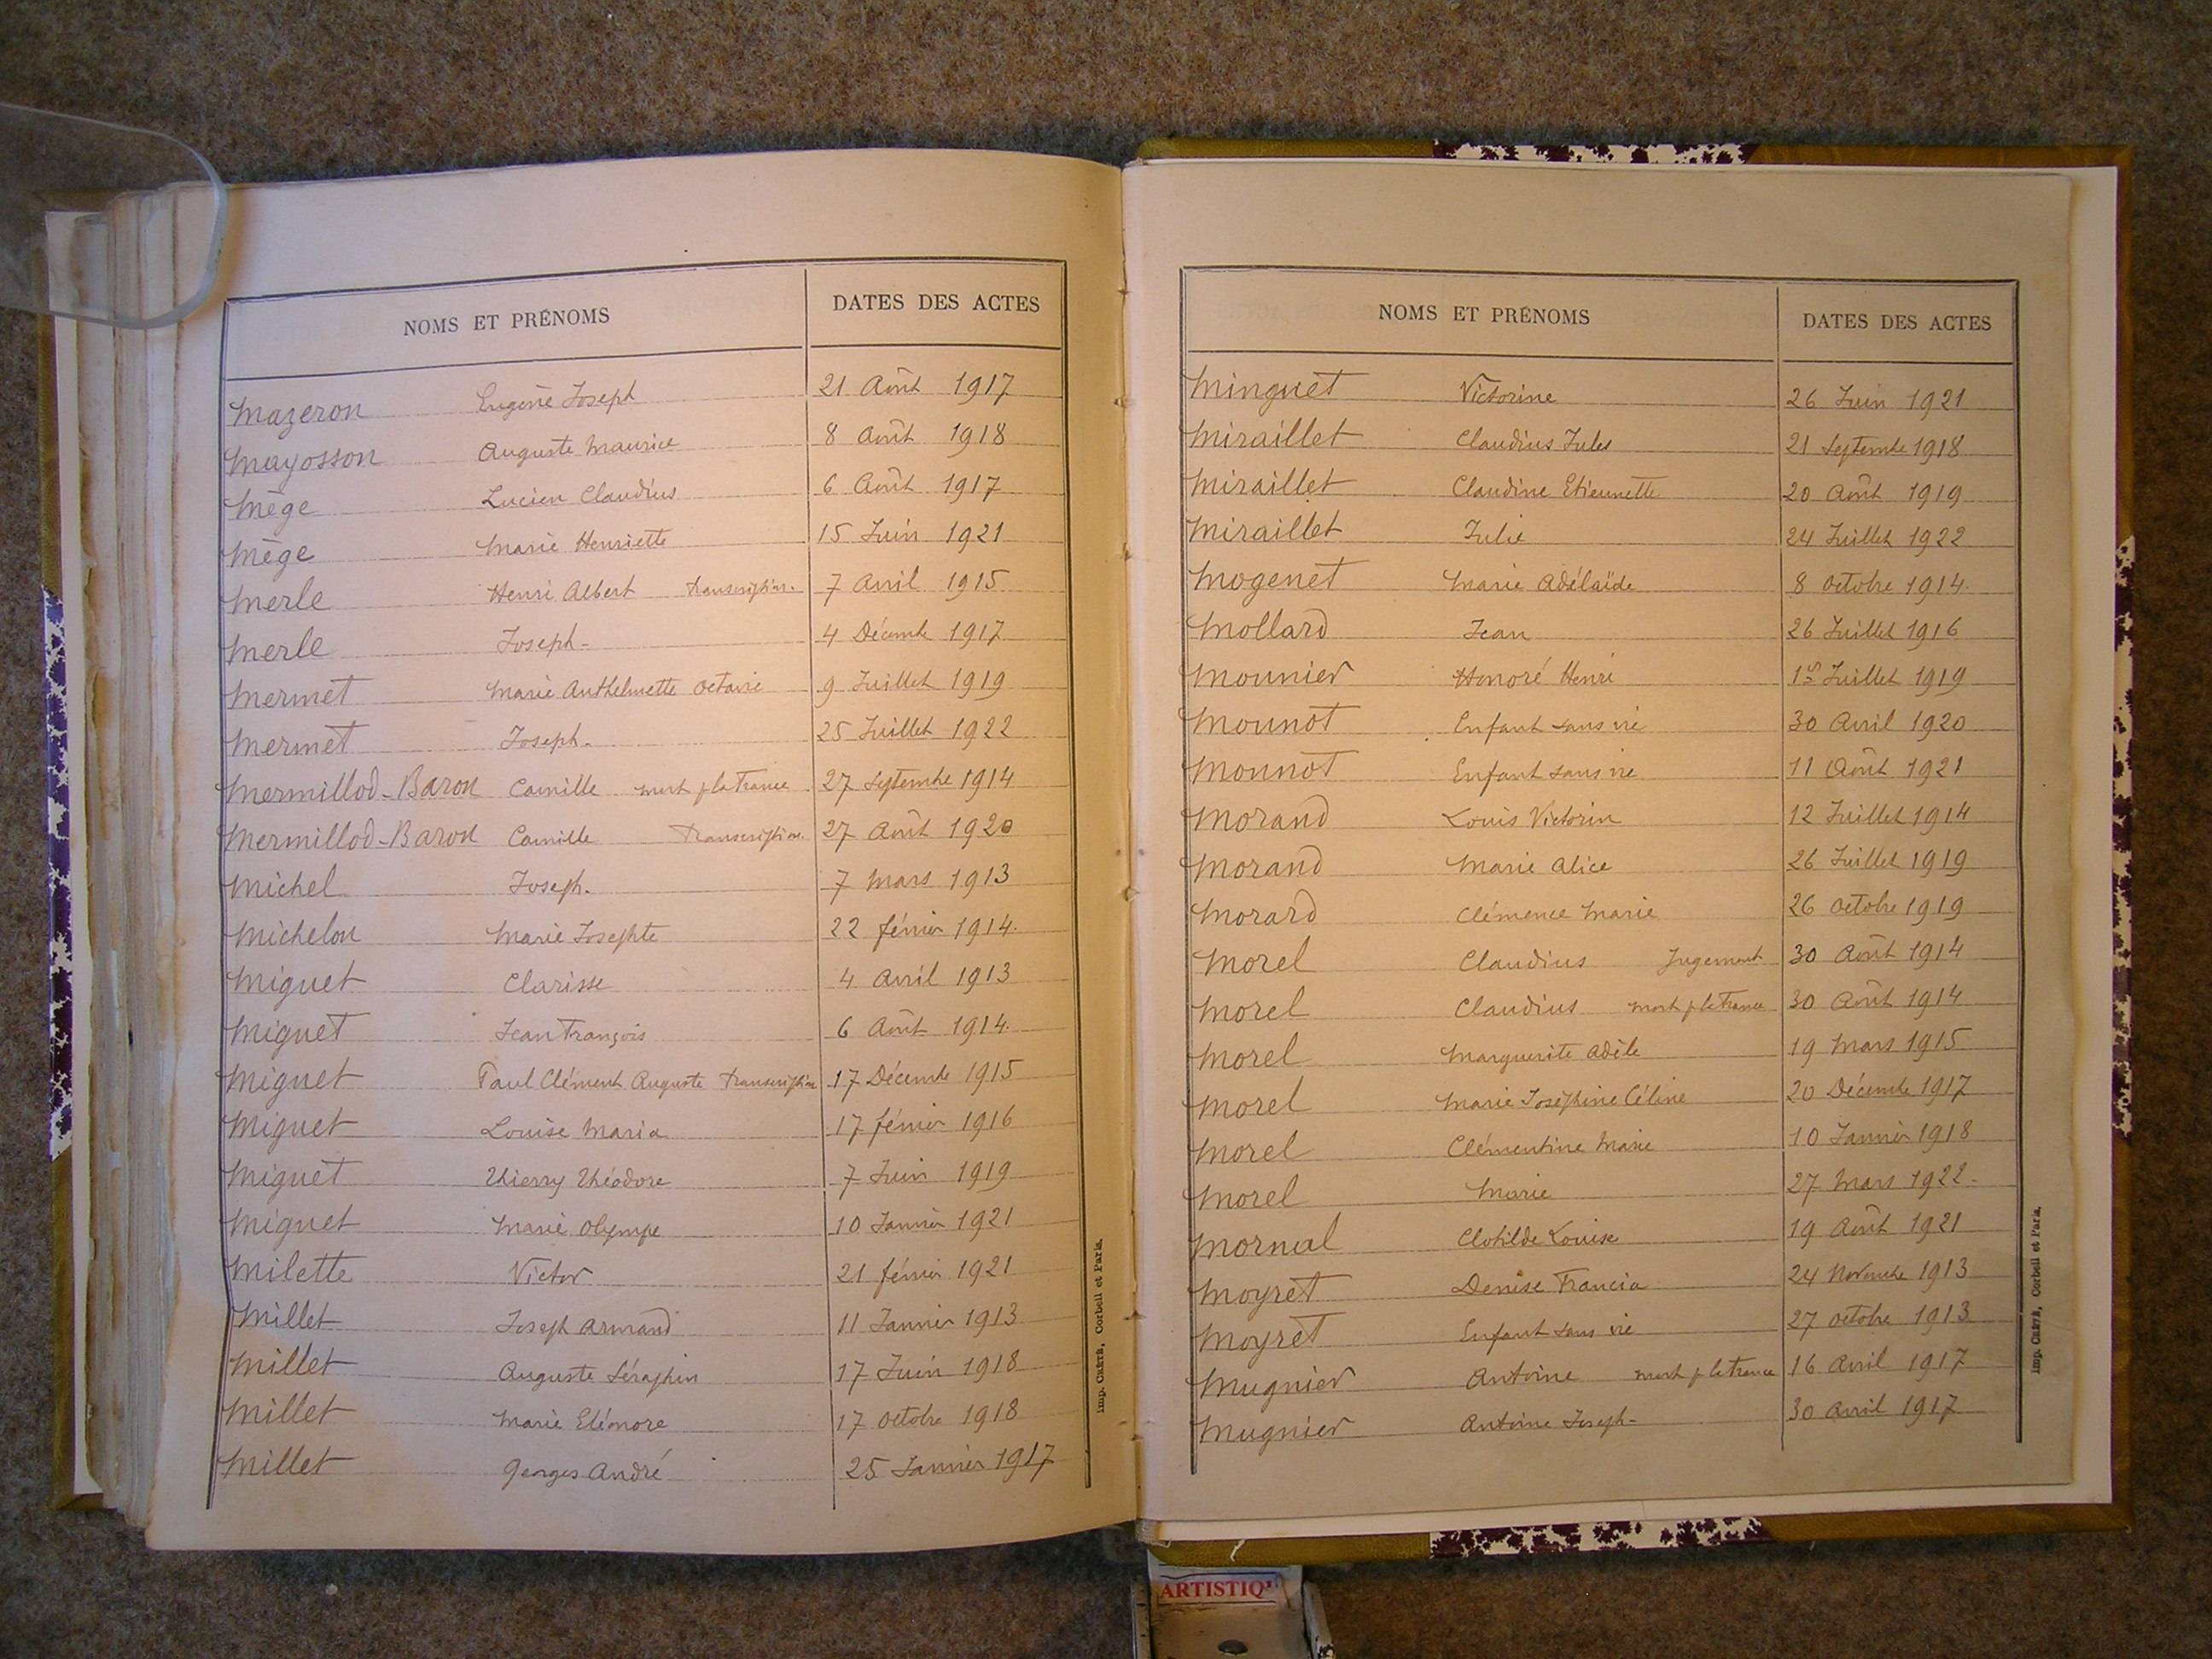 NOMS ET PRÉNOMS DATES DES ACTES
Mazeron Eugène Joseph 21 Août 1917
Mayosson Auguste Maurice 8 Août 1918
Mège Lucien Claudius 6 Août 1917
Mège Marie Henriette 15 Juin 1921
Merle Henri Albert transcription. 7 Avril 1915
Merle Joseph 4 Décembre 1917
Mermet Marie Anthelmette Octavie 9 Juillet 1919
Mermet Joseph 25 Juillet 1922
Mermillod-Baron Camille mort p la France 27 Septembre 1914
Mermillod-Baron Camille Transcription 27 Août 1920
Michel Joseph. 7 Mars 1913
Michelon Marie Josephte 22 février 1914
Miguet Clarisse 4 Avril 1913
Miguet Jean François 6 Août 1914
Miguet Paul Clément Auguste transcription 17 Décembre 1915
Miguet Louise Maria 17 février 1916
Miguet Thierry Théodore 7 Juin 1919
Miguet Marie Olympe 10 Janvier 1921
Milette Victor 21 février 1921
Millet Joseph Armand 11 Janvier 1913
Millet Auguste Séraphin 17 Juin 1918
Millet Marie Eléonore 17 Octobre 1918
Millet Georges André 25 Janvier 1917
Imp. CRÉTÉ, Corbeil et Paris.
NOMS ET PRÉNOMS DATES DES ACTES
Minguet Victorine 26 Juin 1921
Miraillet Claudius Jules 21 Septembre 1918
Miraillet Claudine Etiennette 20 Août 1919
Miraillet Julie 24 Juillet 1922
Mogenet Marie Adélaïde 8 Octobre 1914
Mollard Jean 26 Juillet 1916
Mounier Honoré Henri 1er Juillet 1919
Mounot Enfant sans vie 30 Avril 1920
Monnot Enfant sans vie 11 Août 1921
Morand Louis Victorin 12 Juillet 1914
Morand Marie Alice 26 Juillet 1919
Morard Clémence Marie 26 Octobre 1919
Morel Claudius Jugement 30 Août 1914
Morel Claudius mort p la France 30 Août 1914
Morel Marguerite Adèle 19 Mars 1915
Morel Marie Joséphine Céline 20 Décembre 1917
Morel Clémentine Marie 10 Janvier 1918
Morel Marie 27 Mars 1922
Mornal Clotilde Louise 19 Août 1921
Moyret Denise Francia 24 Novembre 1913
Moyret Enfant sans vie 27 Octobre 1913
Mugnier Antoine mort p la France 16 Avril 1917
Mugnier Antoine Joseph 30 Avril 1917
Imp. CRÉTÉ, Corbeil et Paris.
ARTISTIQ